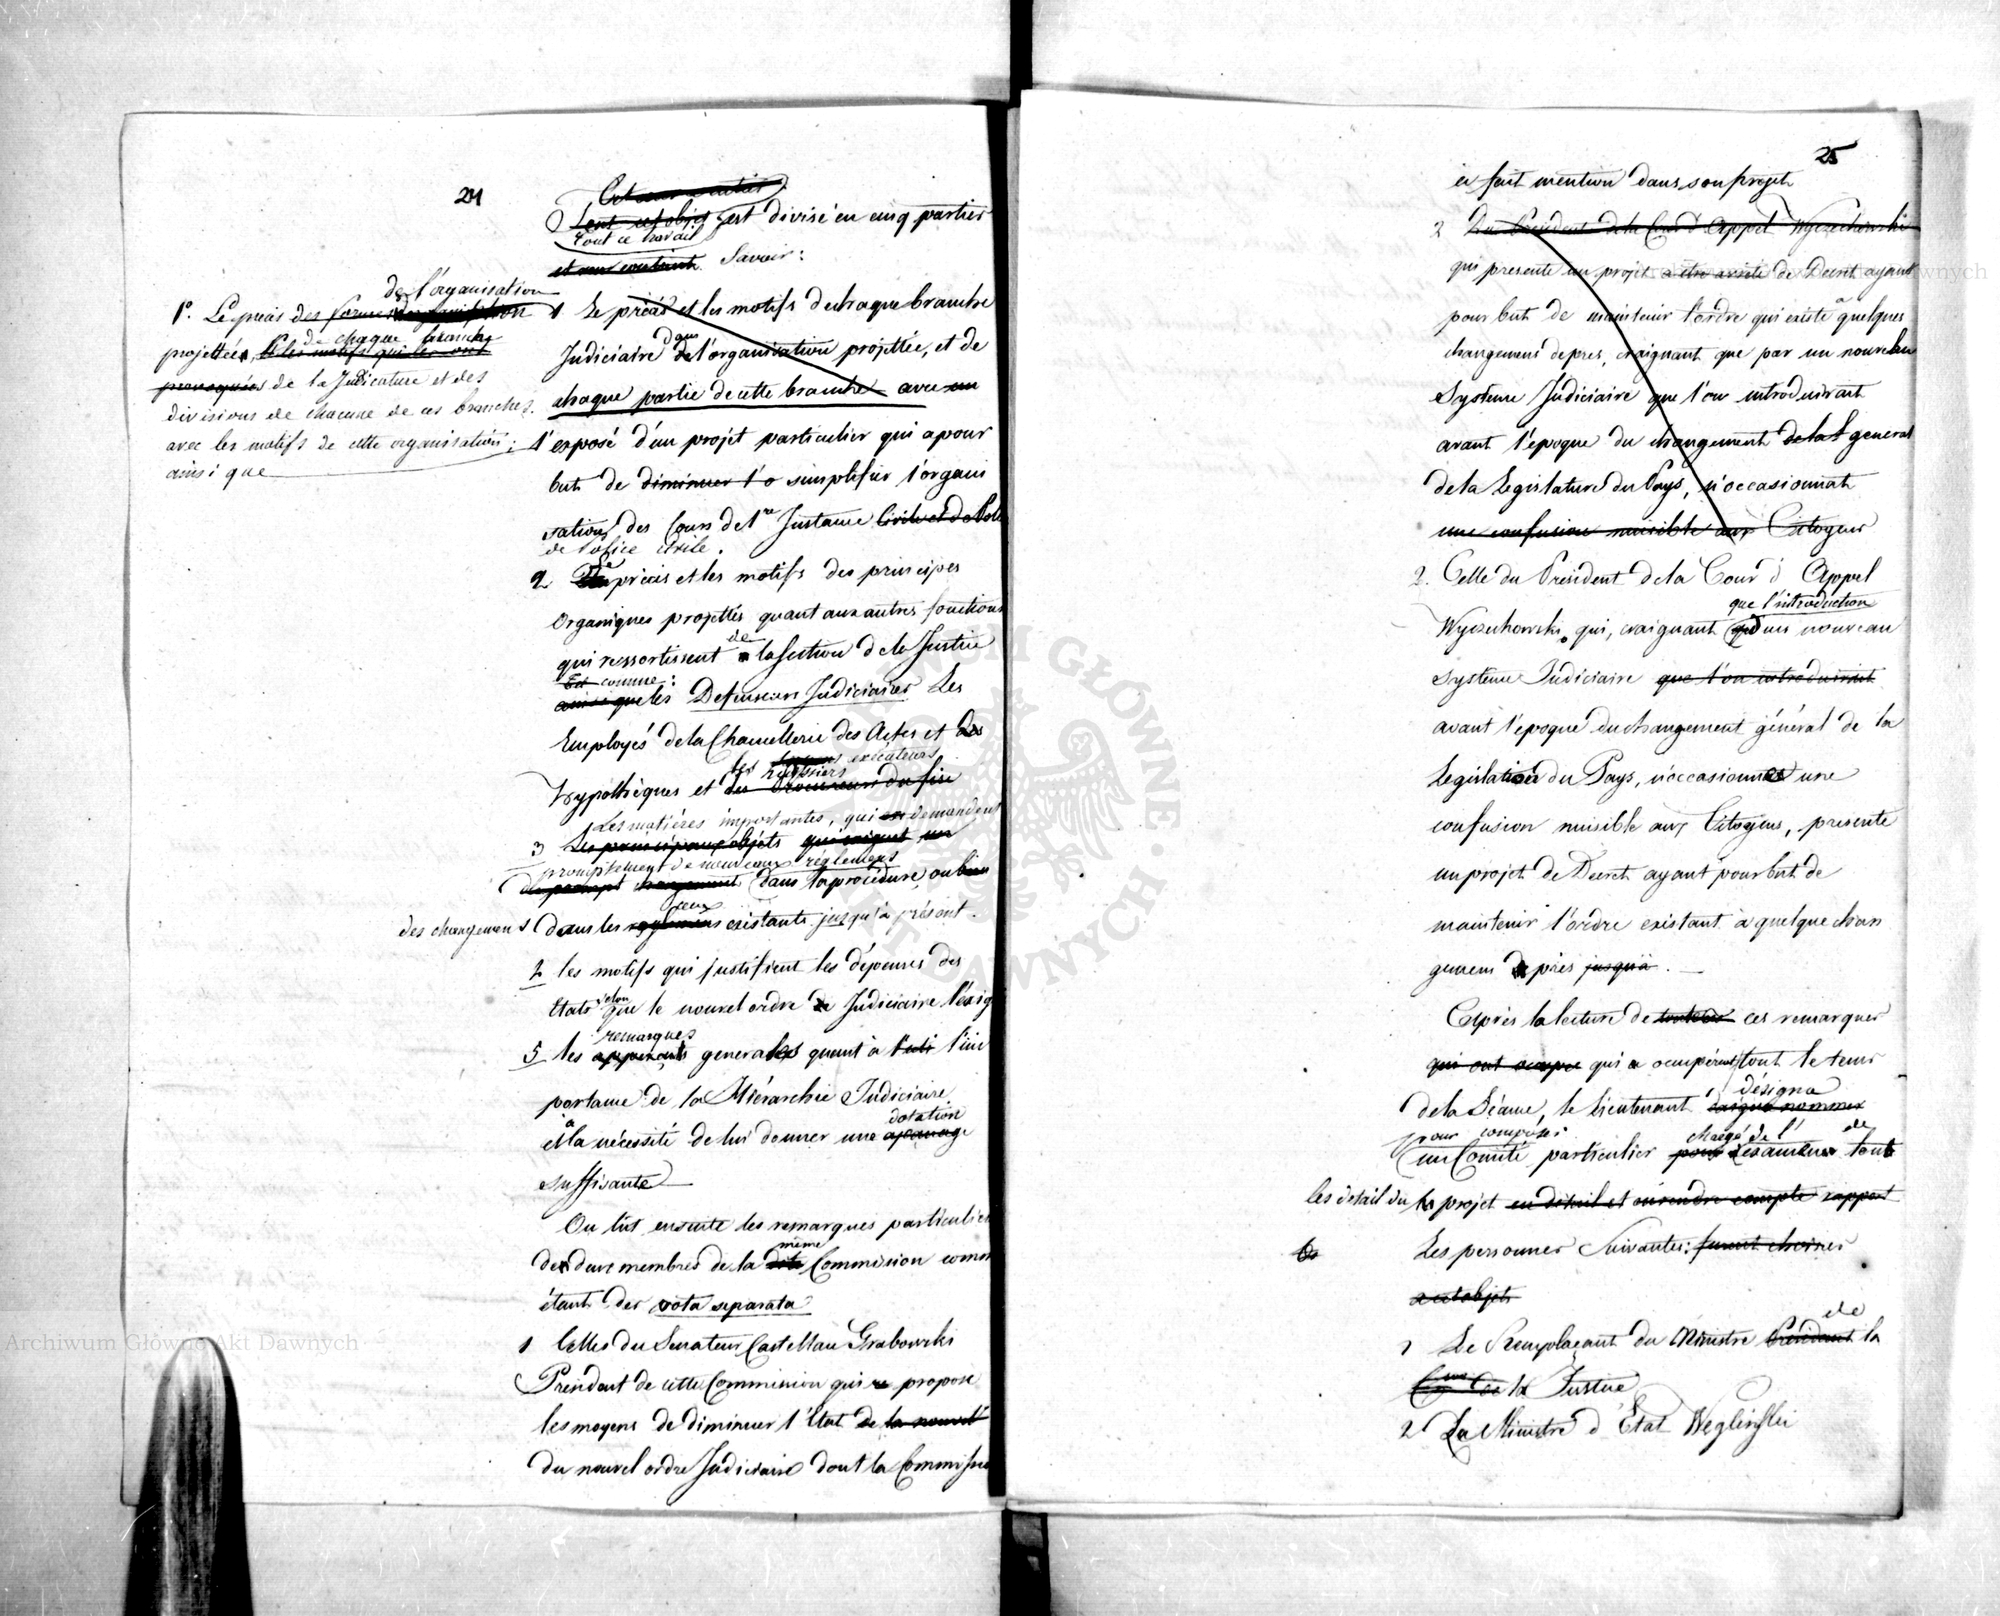 24
Cet
Tout cet objet est divisé en cinq parties
Tout ce travail
Savoir:
de l'organisation
1°. Le precis des formes
projettées, et les motifs qui les ont
de chaque branche
provoquées de la Judicature et des
divisions de chacune de ces branches.
avec les motifs de cette organisation;
ainsi que
1 Le précis et les motifs de chaque branche
Judiciaire dans de l'organisation projettée, et de
chaque partie de cette branche avec un
l'exposé d'un projet particulier qui a pour
but de diminuer l'o simplifier l'organi
sation des Cours de 1re Instance Civile et de Poli
de Police civile.
2 Le précis et les motifs des principes
Organiques projettés quant aux autres fonctions
qui ressortissent de la section de la Justice
comme:
ainsi que les Defenseurs Judiciaires Les
Employés de la Chancellerie des Actes et des
exécuteurs
les huissiers
Hypothèques et des Procureurs du fisc
Les matières importantes, qui en demandent
3 Les principaux objets qui exigent un
promptement de nouveaux règlemens
du prompt changement dans la procédure, ou bien
des changemens dans les ceux existants jusqu'à présent.
4 les motifs qui justifient les dépenses des
Etats selon que le nouvel ordre de Judiciaire l'exig
remarques
5 les generales quant à l'uti l'im
portance de la Hiérarchie Judiciaire
dotation
et à la nécessité de lui donner une apanage
suffisante
On lut ensuite les remarques particulie
même
de deux membres de la dite Commission comm
étant des vota separata
1 Celles du Senateur Castellan Grabowski
Président de cette Commission qui propose
les moyens de diminuer l'Etat de la nouvel
du nouvel ordre Judiciaire dont la Commissi
25
a fait mention dans son projet
2 Du Président de la Cour d'Appel Wyczechowski
qui presente un projet de Decret ayant
pour but de maintenir l'ordre qui existe à quelques
changemens de pres, craignant que par un nouveau
Système Judiciaire que l'on introduirait
avant l'epoque du changement de la L general
de la Legislature du Pays, n'occasionnat
une confusion nuisible aux Citoyens
2. Celle du President de la Cour d'Appel
que l'introduction
Wyczechowski, qui, craignant qu'un nouveau
systême Judiciaire que l'on introduiroit
avant l'epoque du changement général de la
Legislation du Pays, n'occasionnes une
confusion nuisible aux Citoyens, presente
un projet de Decret ayant pour but de
maintenir l'ordre existant à quelque chan
gemens près jusqu'à.
Après la lecture de toutes ces remarques
qui ont occupé qui occupérent tout le tems
désigna
de la Séance, le Lieutenant nommer
pour composer chargé de l' de
un Comité particulier pour examiner tout
les détail du projet en détail et en rendre compte rapport
Les personnes Suivantes: furent choisies
à cet objet
de
1 Le Remplaçant du Ministre Président la
de la Justice
2 Le Ministre d'Etat Weglinski
Archiwum Główne Akt Dawnych
ARCHIWUM GŁÓWNE AKT DAWNYCH